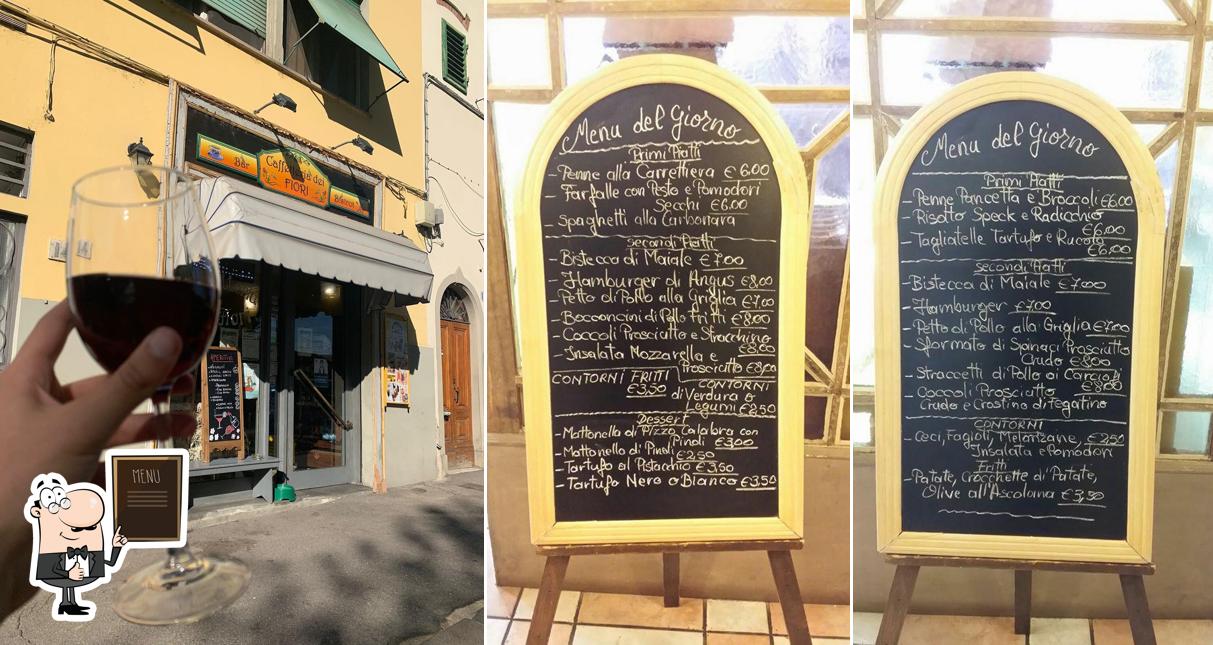 Bar
Caffetteria dei
FIORI
Bistrot
APERITIVI
MENU
Menu del Giorno
Primi Piatti
- Penne alla Carrettiera €6.00
- Farfalle con Pesto e Pomodori
Secchi €6.00
- Spaghetti alla Carbonara
Secondi Piatti
- Bistecca di Maiale €7.00
- Hamburger di Angus €8,00
- Petto di Pollo alla Griglia €7,00
- Bocconcini di Pollo Fritti €8.00
- Coccoli Prosciutto e Stracchino
€8,00
- Insalata Mozzarella e
Prosciutto €8,00
CONTORNI FRITTI
€3,50
CONTORNI
di Verdura o
Legumi €2,50
Dessert
- Mattonella di Pizzo Calabro con
Pinoli €3,00
- Mattonella di Pinoli €2,50
- Tartufo al Pistacchio €3,50
- Tartufo Nero o Bianco €3.50
Menu del Giorno
Primi Piatti
- Penne Pancetta e Broccoli €6.00
- Risotto Speck e Radicchio
€6,00
- Tagliatelle Tartufo e Rucola
€6,00
Secondi Piatti
- Bistecca di Maiale €7,00
- Hamburger €7,00
- Petto di Pollo alla Griglia €7,00
- Sformato di Spinaci Prosciutto
Crudo €8,00
- Straccetti di Pollo ai Carciofi
€8,00
- Coccoli Prosciutto
Crudo e Crostino di Fegatino
CONTORNI
- Ceci, Fagioli, Melanzane, €2,50
Insalata e Pomodori
Fritti
- Patate, Crocchette di Patate,
Olive all'Ascolana €3,50